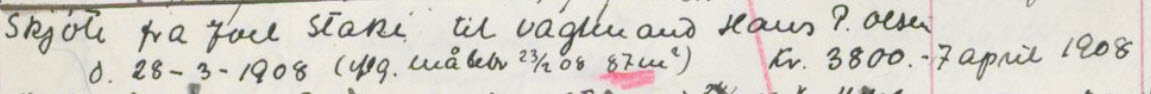 Skjöte fra Joel Stake til vagtmand Hans P. Olsen
d. 28-3-1908 (iflg. målebr 23/2 08 87m²) Kr. 3800.- 7 april 1908